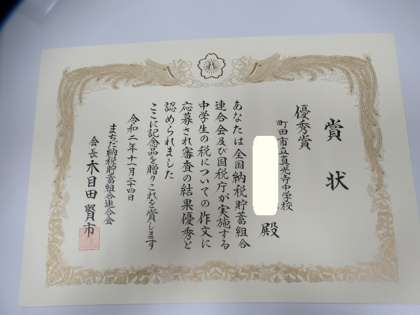 賞状
優秀賞
町田市立真光寺中学校
殿
あなたは全国納税貯蓄組合
連合会及び国税庁が実施する
中学生の税についての作文に
応募され審査の結果優秀と
認められました
ここに記念品を贈りこれを賞します
令和二年十一月二十四日
まちだ納税貯蓄組合連合会
会長 木目田賢市